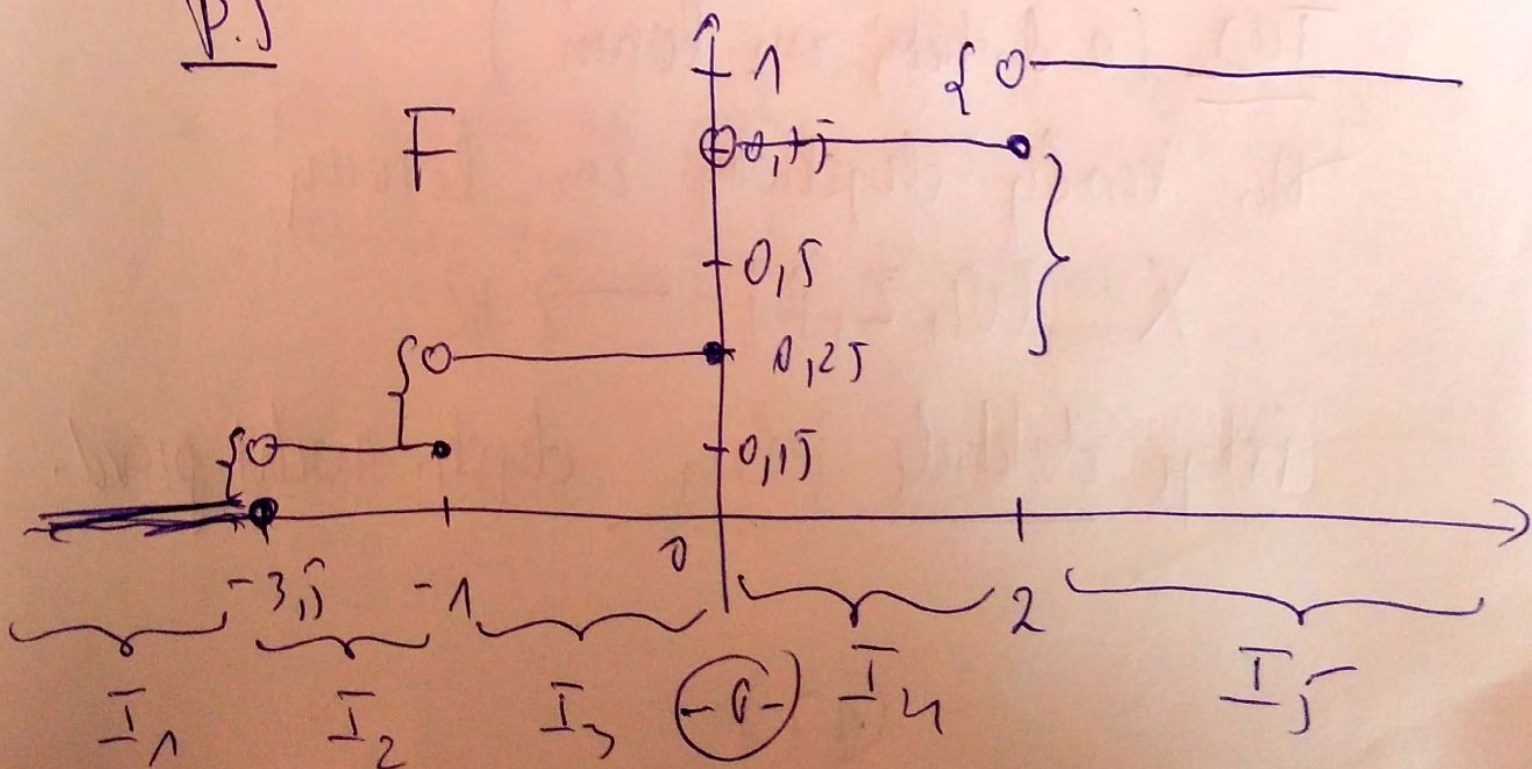 P.J
1
F
0,75
0,5
0,25
0,15
0
-3,5 -1 2
I1 I2 I3 -0- I4 I5